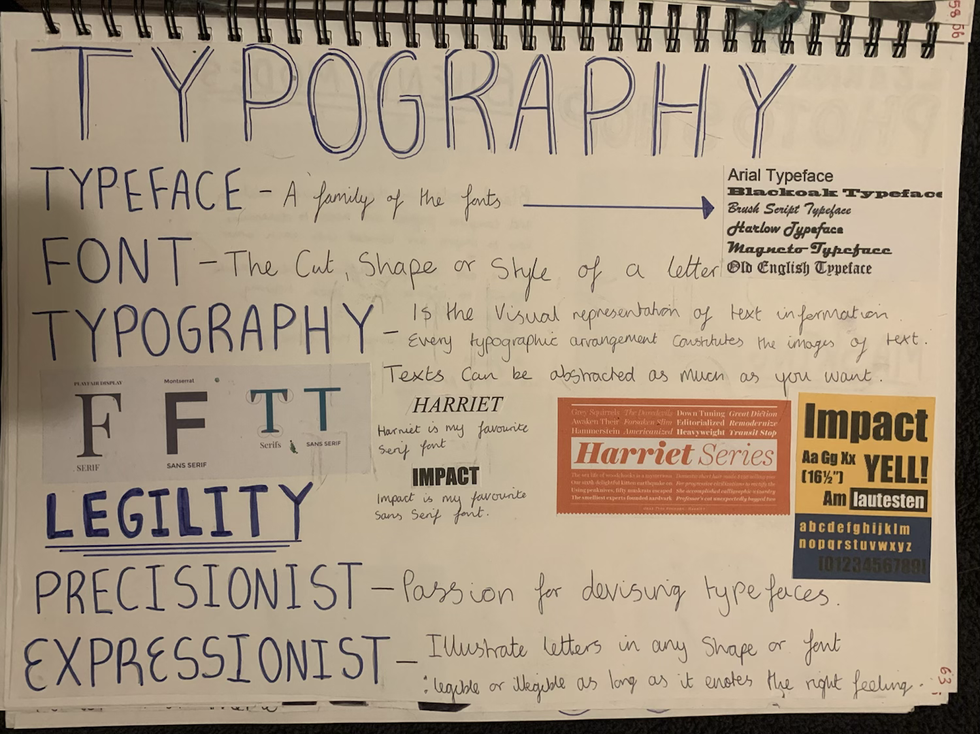 TYPOGRAPHY
TYPEFACE - A family of the fonts
Arial Typeface
Blackoak Typeface
Brush Script Typeface
Harlow Typeface
Magneto Typeface
Old English Typeface
FONT - The Cut, Shape or Style of a letter
TYPOGRAPHY - Is the Visual representation of text information.
Every typographic arrangement Constitutes the images of text.
Texts Can be abstracted as much as you want.
PLAYFAIR DISPLAY
F
SERIF
Montserrat
F
SANS SERIF
T T
Serifs
SANS SERIF
HARRIET
Harriet is my favourite
Serif font
IMPACT
Impact is my favourite
Sans Serif font.
Grey Squirrels The Downtown Down Tuning Great Diction
Awaken Their Editorialized Remodernize
Hammerstein Americanized Heavyweight Transit Stop
Harriet Series
Impact
Aa Gg Xx
(16½") YELL!
Am lautesten
abcdefghijklm
nopqrstuvwxyz
[0123456789]
LEGILITY
PRECISIONIST - Passion for devising typefaces.
EXPRESSIONIST - Illustrate letters in any Shape or font
: legible or illegible as long as it enotes the right feeling.
58 56
63